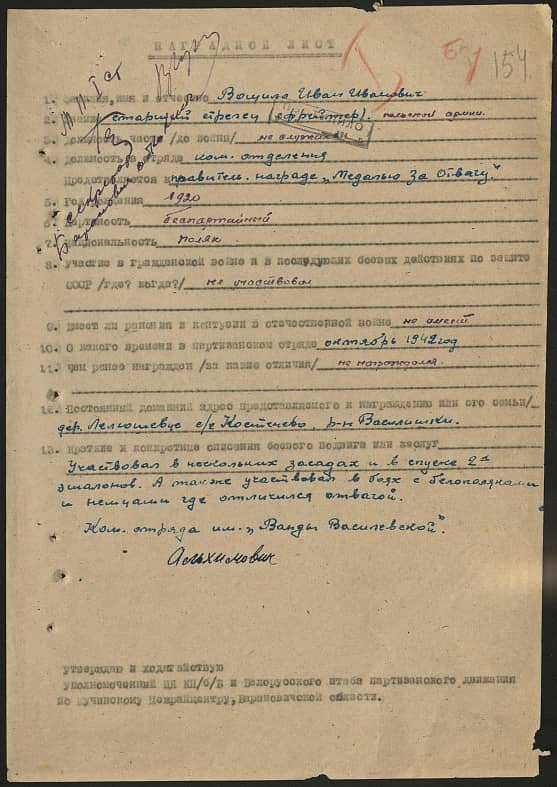 НАГРАДНОЙ ЛИСТ
154
1. Фамилия, имя и отчество Вощило Иван Иванович
2. Звание старший стрелец (ефрейтор). польской армии.
3. Должность часть /до войны/ не служил
4. Должность в отряде ком. отделения
Представляется к правитель. награде „Медалью За Отвагу"
5. Год рождения 1920
6. Партийность беспартийный
7. Национальность поляк
8. Участие в гражданской войне и в последующих боевых действиях по защите
СССР /где? когда?/ не участвовал
9. Имеет ли ранения и контузии в отечественной войне не имеет
10. С какого времени в партизанском отряде октябрь 1942 год
11. Чем ранее награжден /за какие отличия/ не награждался
12. Постоянный домашний адрес представляемого к награждению или его семьи/
дер. с/с р-н Василишки.
13. Краткие и конкретные описания боевого подвига или заслуг
Участвовал в нескольких засадах и в спуске 2х
эшалонов. А также участвовал в боях с белополяками
и немцами где отличился отвагой.
Ком. отряда им. „Ванды Василевской".
Альхимович
утверждаю и ходатайствую
уполномоченный ЦК КП/б/Б и Белорусского штаба партизанского движения
по Щучинскому Межрайцентру, Барановичской области.